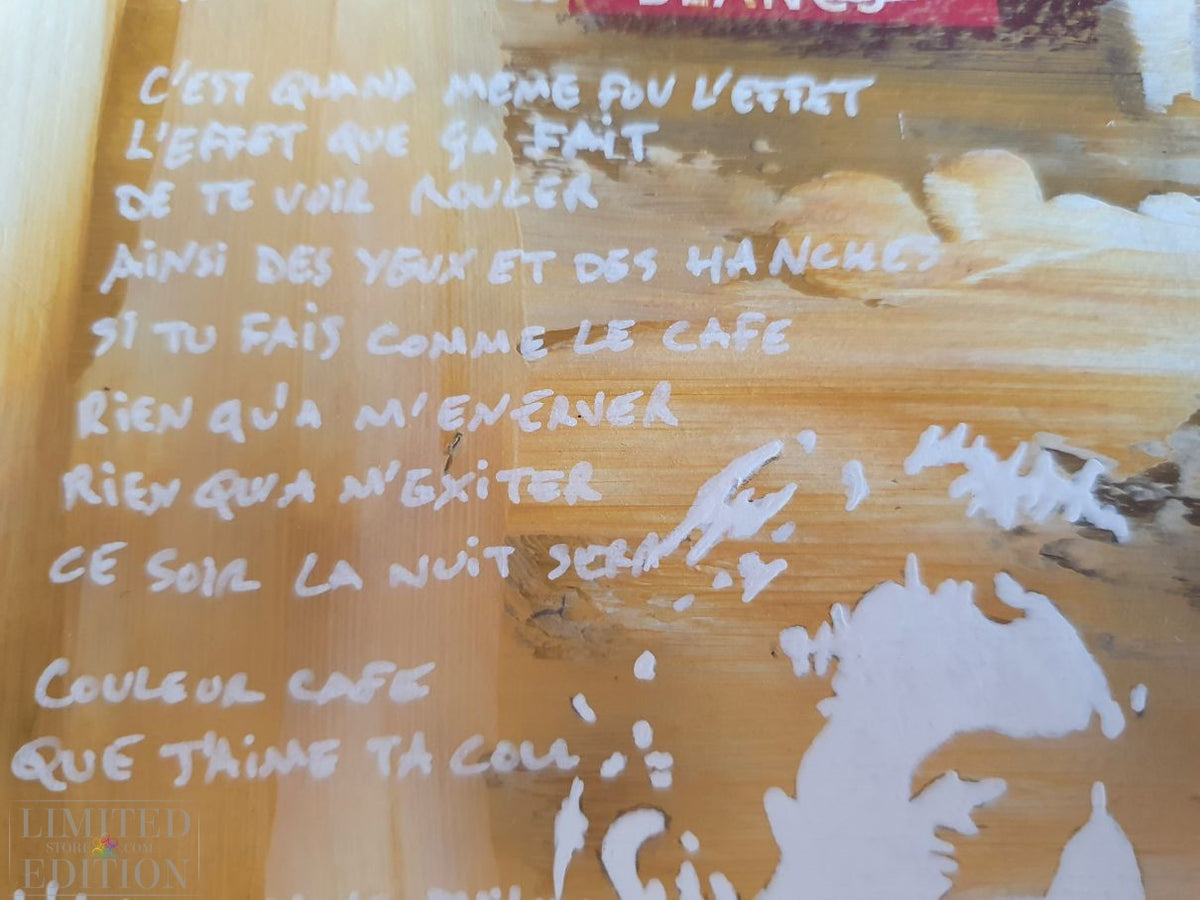 BLANCS
C'EST QUAND MEME FOU L'EFFET
L'EFFET QUE ÇA FAIT
DE TE VOIR ROULER
AINSI DES YEUX ET DES HANCHES
SI TU FAIS COMME LE CAFE
RIEN QU'A M'ENERVER
RIEN QU'A M'EXITER
CE SOIR LA NUIT SERA
COULEUR CAFE
QUE J'AIME TA COUL
LIMITED
STORE .COM
EDITION